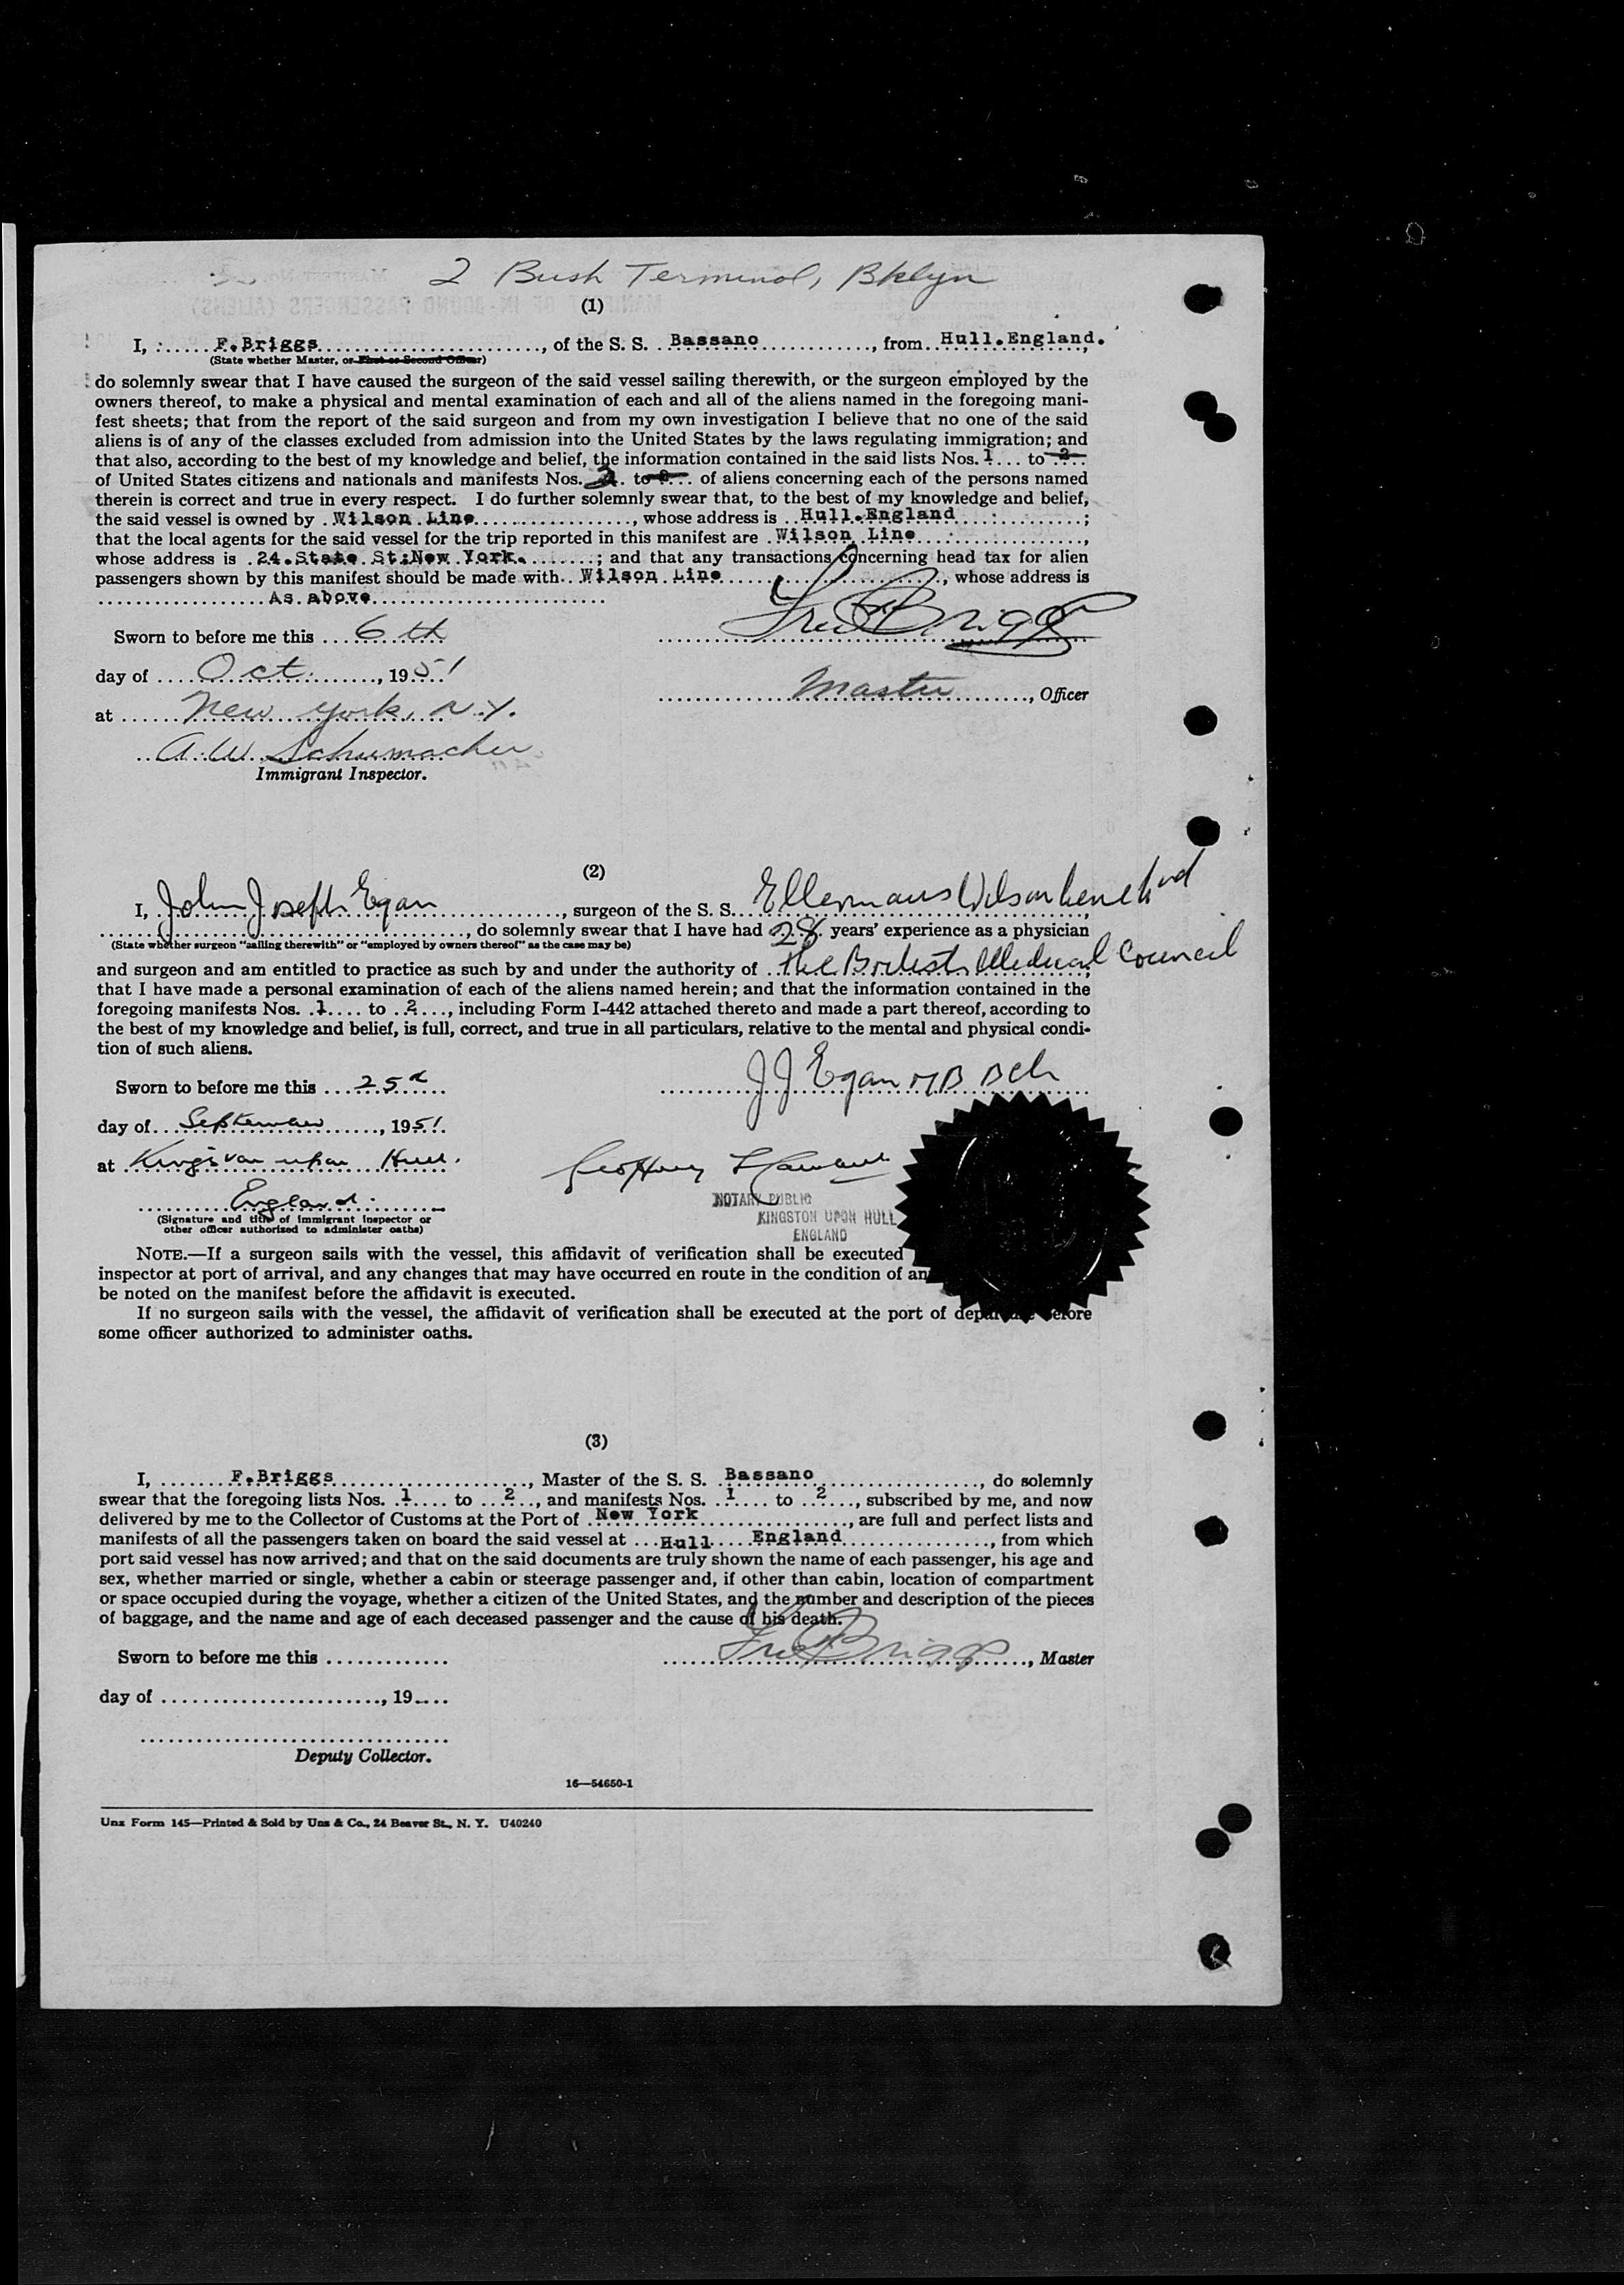 2 Bush Terminal, Bklyn
(1)
I, F.Briggs, of the S. S. Bassano, from Hull.England.
(State whether Master, or First or Second Officer)
do solemnly swear that I have caused the surgeon of the said vessel sailing therewith, or the surgeon employed by the
owners thereof, to make a physical and mental examination of each and all of the aliens named in the foregoing mani-
fest sheets; that from the report of the said surgeon and from my own investigation I believe that no one of the said
aliens is of any of the classes excluded from admission into the United States by the laws regulating immigration; and
that also, according to the best of my knowledge and belief, the information contained in the said lists Nos. 1 to 2
of United States citizens and nationals and manifests Nos. to of aliens concerning each of the persons named
therein is correct and true in every respect. I do further solemnly swear that, to the best of my knowledge and belief,
the said vessel is owned by Wilson Line, whose address is Hull.England;
that the local agents for the said vessel for the trip reported in this manifest are Wilson Line,
whose address is 24.State St:New York.; and that any transactions concerning head tax for alien
passengers shown by this manifest should be made with Wilson Line, whose address is
As above
Fred Briggs
Sworn to before me this 6th
day of Oct., 1951
Master, Officer
at New York, N.Y.
A.W. Schumacher
Immigrant Inspector.
(2)
I, John Joseph Egan, surgeon of the S. S. Ellermans Wilson Line Ltd
, do solemnly swear that I have had 28 years' experience as a physician
(State whether surgeon "sailing therewith" or "employed by owners thereof" as the case may be)
and surgeon and am entitled to practice as such by and under the authority of the British Medical Council;
that I have made a personal examination of each of the aliens named herein; and that the information contained in the
foregoing manifests Nos. 1 to 2, including Form I-442 attached thereto and made a part thereof, according to
the best of my knowledge and belief, is full, correct, and true in all particulars, relative to the mental and physical condi-
tion of such aliens.
J J Egan MB BCh
Sworn to before me this 25th
day of September, 1951.
at Kingston upon Hull.
Geoffrey
England.
NOTARY PUBLIC
KINGSTON UPON HULL
ENGLAND
(Signature and title of immigrant inspector or
other officer authorized to administer oaths)
NOTE.—If a surgeon sails with the vessel, this affidavit of verification shall be executed
inspector at port of arrival, and any changes that may have occurred en route in the condition of
be noted on the manifest before the affidavit is executed.
If no surgeon sails with the vessel, the affidavit of verification shall be executed at the port of departure before
some officer authorized to administer oaths.
(3)
I, F.Briggs, Master of the S. S. Bassano, do solemnly
swear that the foregoing lists Nos. 1 to 2, and manifests Nos. 1 to 2, subscribed by me, and now
delivered by me to the Collector of Customs at the Port of New York, are full and perfect lists and
manifests of all the passengers taken on board the said vessel at Hull England, from which
port said vessel has now arrived; and that on the said documents are truly shown the name of each passenger, his age and
sex, whether married or single, whether a cabin or steerage passenger and, if other than cabin, location of compartment
or space occupied during the voyage, whether a citizen of the United States, and the number and description of the pieces
of baggage, and the name and age of each deceased passenger and the cause of his death.
Sworn to before me this
Fred Briggs, Master
day of , 19
Deputy Collector.
16—54650-1
Unz Form 145—Printed & Sold by Unz & Co., 24 Beaver St., N. Y. U40240